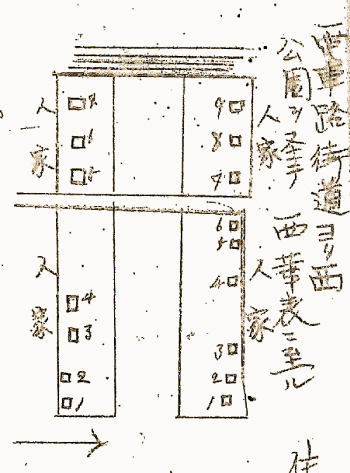 西車路街道ヨリ西
公園ヲ経テ 西華表ニ至ル
人家
人家
人家
人家
9
8
7
6
5
4
3
2
1
6
5
4
3
2
1